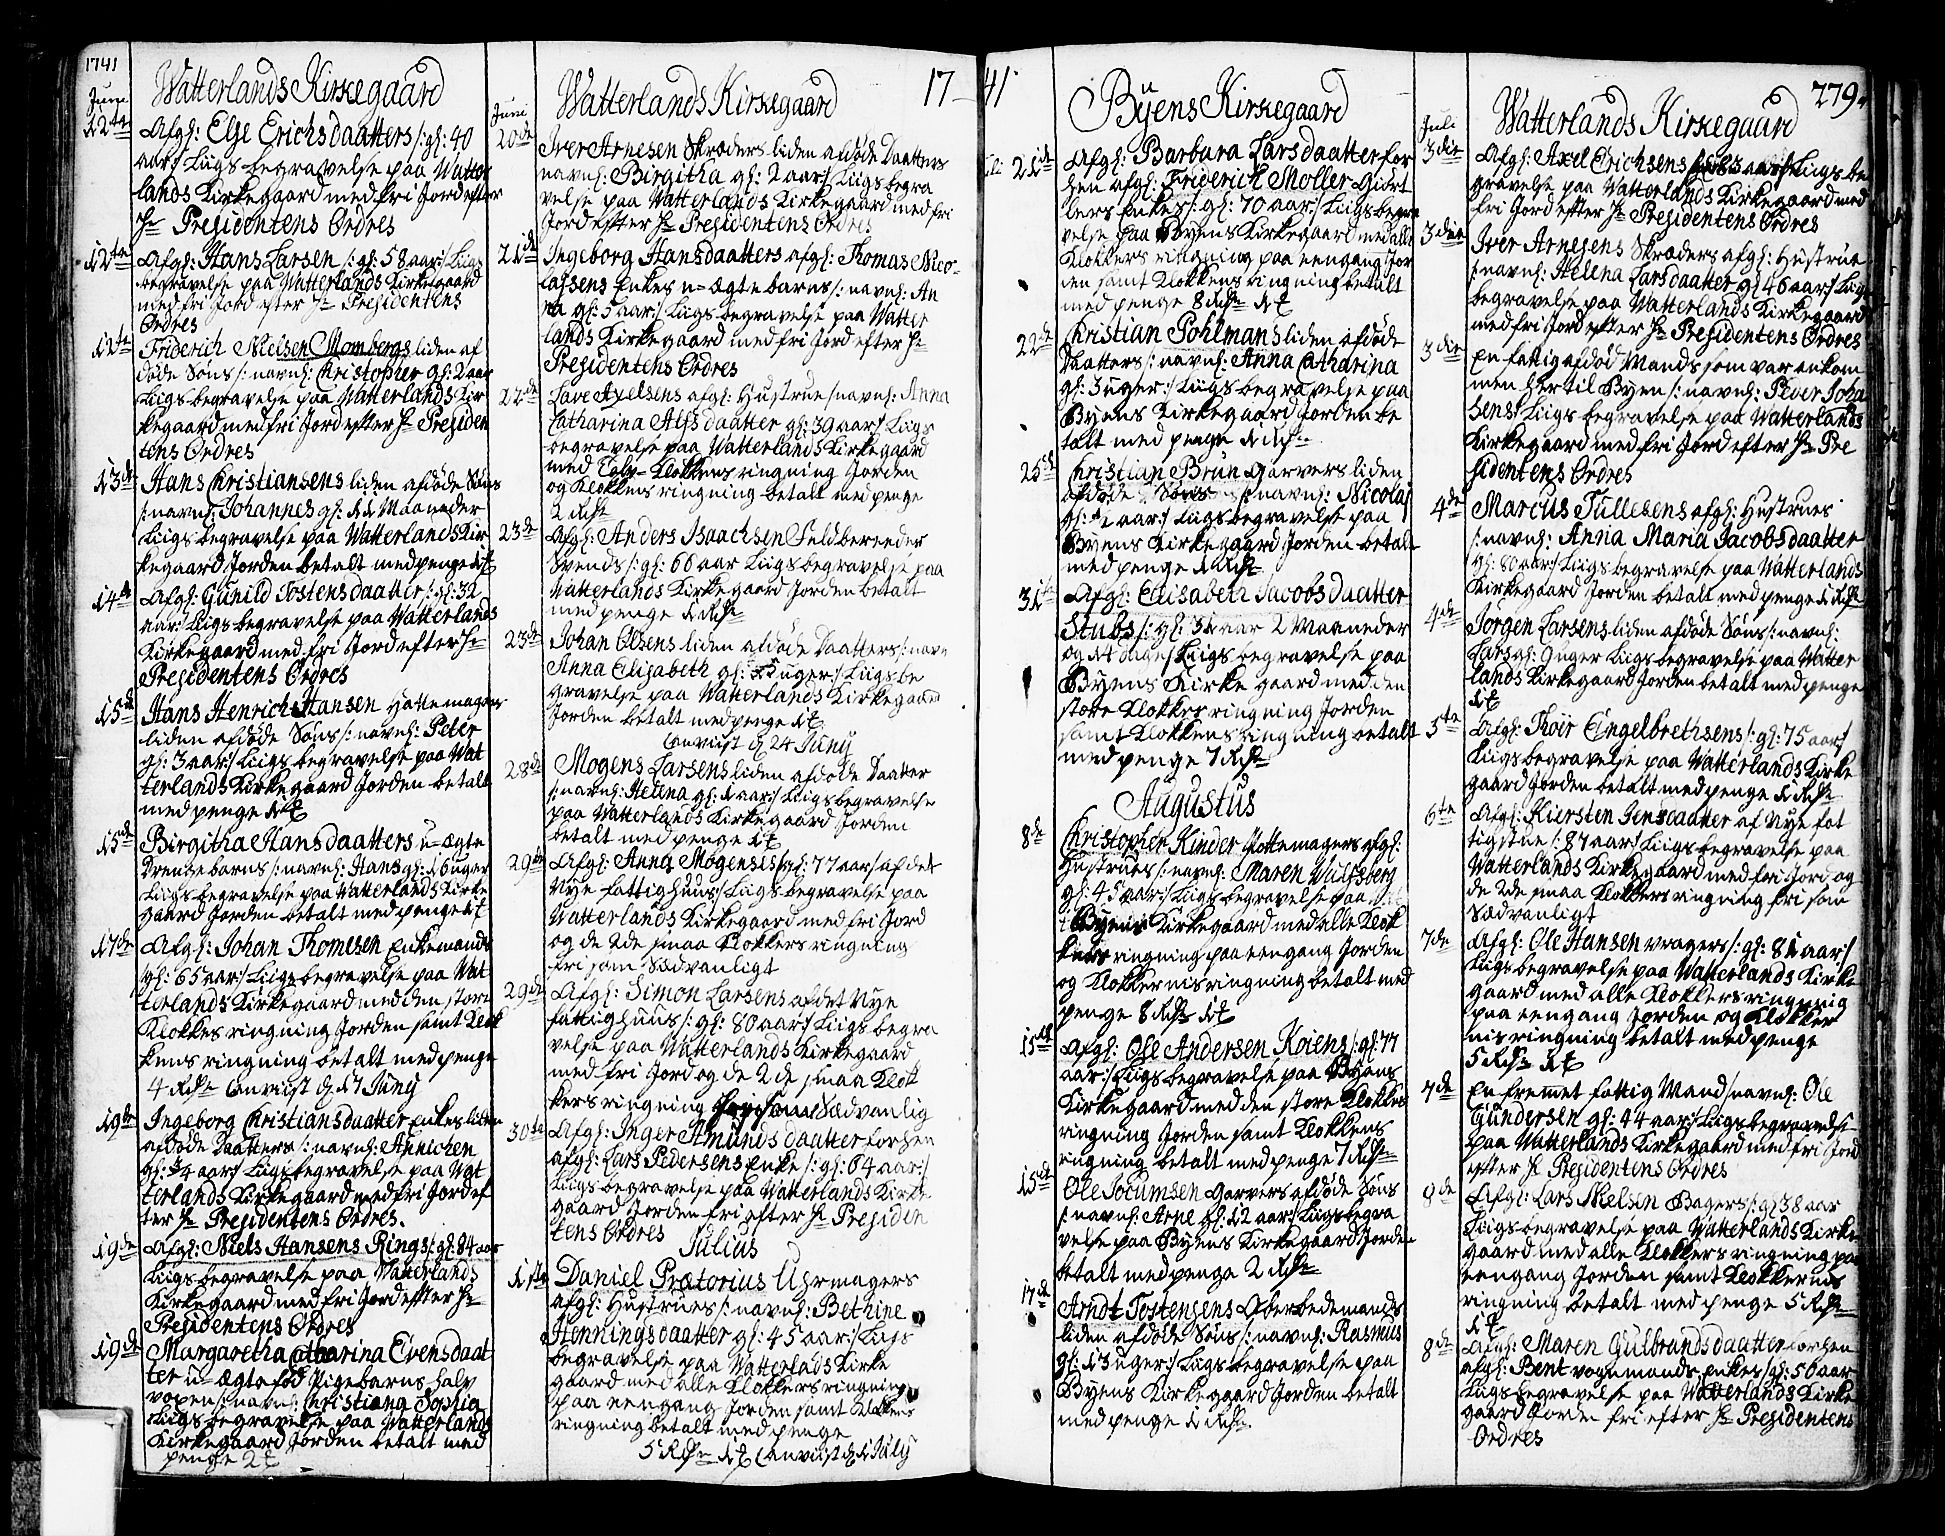 1741
Juni
Watterlands Kirkegaard
12te
Afgl: Else Erichsdaatters /: gl: 40
aar :/ Liigs begravelse paa Watter
lands Kirkegaard med fri Jord efter
Hr Presidentens Ordres
12te
Afgl: Hans Larsen /: gl: 58 aar :/ Liigs
begravelse paa Watterlands Kirkegaard
med fri Jord efter Hr Presidentens
Ordres
12te
Friderich Nielsen Mombergs liden af
døde Søns /: navnl: Christopher gl: 2 aar
Liigs begravelse paa Watterlands Kir
kegaard med fri Jord efter Hr Presiden
tens Ordres
13de
Hans Christiansens liden afdøde Søns
/: navnl: Johannes gl: 11 Maaneder
Liigs begravelse paa Watterlands Kir
kegaard Jorden betalt med penge
14de
Afgl: Gunild Tostensdaatter /: gl: 32
aar :/ Liigs begravelse paa Watterlands
Kirkegaard med fri Jord efter Hr
Presidentens Ordres
15de
Hans Henrich Hansen Hattemagers
liden afdøde Søns /: navnl: Peter
gl: 3 aar :/ Liigs begravelse paa Wat
terlands Kirkegaard Jorden betalt
med penge
15de
Birgitha Hansdaatters u-ægte
Drengebarns /: navnl: Hans gl: 16 uger
Liigs begravelse paa Watterlands Kirke
gaard Jorden betalt med penge
17de
Afgl: Johan Thomesen Enkemands
gl: 65 aar :/ Liigs begravelse paa Wat
terlands Kirkegaard med den store
Klokkes ringning Jorden samt Klok
kens ringning betalt med penge
4 Rdr Anviist d 17 Juny
19de
Ingeborg Christiansdaatter Enkes liden
afdøde Daatters /: navnl: Annichen
gl: 14 aar :/ Liigs begravelse paa Wat
terlands Kirkegaard med fri Jord ef
ter Hr Presidentens Ordres.
19de
Afgl: Niels Hansens Rings /: gl: 84 aar
Liigs begravelse paa Watterlands
Kirkegaard med fri Jord efter Hr
Presidentens Ordres
19de
Margaretha Catharina Evensdaat
ter u-ægte fød Pigebarns halv
voxen /: navnl: Christiana Sophia
Liigs begravelse paa Watterlands
Kirkegaard Jorden betalt med
penge
Juni
Watterlands Kirkegaard
17
20de
Iver Arnesen Skræders liden afdøde Daatters
navnl: Birgitha gl: 2 aar :/ Liigs begra
velse paa Watterlands Kirkegaard med fri
Jord efter Hr Presidentens Ordres
21de
Ingeborg Hansdaatters afgl: Thomas Nico-
laisens Enkes u-ægte barns /: navnl: An
na gl: 5 aar :/ Liigs begravelse paa Watter
lands Kirkegaard med fri Jord efter Hr
Presidentens Ordres
22de
Lave Axelsens afgl: Hustrue /: navnl: Anna
Catharina Alfsdaatter gl: 39 aar :/ Liigs
begravelse paa Watterlands Kirkegaard
med Klokkens ringning Jorden
og Klokkens ringning betalt med penge
2 Rdr
23de
Afgl: Anders Isaachsen Feldbereeder
Svends /: gl: 66 aar Liigs begravelse paa
Watterlands Kirkegaard Jorden betalt
med penge 1 Rdr
23de
Johan Olsens liden afdøde Daatters /: navn
Anna Elisabeth gl: uger :/ Liigs be
gravelse paa Watterlands Kirkegaard
Jorden betalt med penge
Anviist d 24 Juny
28de
Mogens Larsens liden afdøde Daatter
/: navnl: Helena gl: 1 aar :/ Liigs begravelse
paa Watterlands Kirkegaard Jorden
betalt med penge
29de
Afgl: Anna Mogenses /: gl: 77 aar / af det
Nye fattighuus :/ Liigs begravelse paa
Watterlands Kirkegaard med fri Jord
og de 2de smaa Klokkers ringning
fri som Sædvanligt
29de
Afgl: Simon Larsens af det Nye
fattighuus /: gl: 80 aar :/ Liigs begra
velse paa Watterlands Kirkegaard
med fri Jord og de 2de smaa Klok
kers ringning fri som Sædvanlig
30te
Afgl: Inger Amundsdaatter forhen
afgl: Lars Pedersens Enke /: gl: 64 aar :/
Liigs begravelse paa Watterlands Kirke
gaard Jorden fri efter Hr Presiden
tens Ordres
Julius
1ste
Daniel Prætorius Uhrmagers
afgl: Hustrues /: navnl: Bethine
Henningsdaatter gl: 45 aar :/ Liigs
begravelse paa Watterlands Kirke
gaard med alle Klokkers ringning
paa eengang Jorden samt Klokkens
ringning betalt med penge
5 Rdr Anviist d 1 July
41.
Byens Kirkegaard
21de
Afgl: Barbara Larsdaatter for
hen afgl: Friderich Møller Giørt
lers Enkes /: gl: 70 aar :/ Liigs begra
velse paa Byens Kirkegaard med alle
Klokkers ringning paa eengang Jor
den samt Klokkens ringning betalt
med penge 8 Rdr
22de
Christian Pohlmans liden afdøde
Daatters /: navnl: Anna Catharina
gl: 3 uger :/ Liigs begravelse paa
Byens Kirkegaard Jorden be
talt med penge 1 Rdr
25de
Christian Brun Garvers liden
afdøde Søns /: navnl: Nicolaj
gl: aar :/ Liigs begravelse paa
Byens Kirkegaard Jorden betalt
med penge 1 Rdr
31te
Afgl: Elisabeth Jacobsdaatter
Stubs /: gl: 31 aar 2 Maaneder
og 14 dage :/ Liigs begravelse paa
Byens Kirkegaard med den
store Klokkes ringning Jorden
samt Klokkens ringning betalt
med penge 7 Rdr
Augustus
8de
Christopher Kinder Pottemagers afgl:
Hustrues /: navnl: Maren Wulfsberg
gl: 45 aar :/ Liigs begravelse paa
Byens Kirkegaard med alle Klok
kers ringning paa eengang Jorden
og Klokkernis ringning betalt med
penge 8 Rdr
15de
Afgl: Ole Andersen Koiens /: gl: 77
aar :/ Liigs begravelse paa Byens
Kirkegaard med den store Klokkes
ringning Jorden samt Klokkens
ringning betalt med penge 7 Rdr
15de
Ole Jocumsen Garvers afdøde Søns
/: navnl: Arne gl: 12 aar :/ Liigs begra
velse paa Byens Kirkegaard Jorden
betalt med penge 2 Rdr
17de
Arndt Tostensens Oberbedemands
liden afdøde Søns /: navnl: Rasmus
gl: 13 uger :/ Liigs begravelse paa
Byens Kirkegaard Jorden betalt
med penge 1 Rdr
Juli
Watterlands Kirkegaard
279.
3die
Afgl: Axel Erichsens aar :/ Liigs be
gravelse paa Watterlands Kirkegaard med
fri Jord efter Hr Presidentens Ordres
3die
Iver Arnesens Skræders afgl: Hustrue
/: navnl: Helena Larsdaatter gl 46 aar :/ Liigs
begravelse paa Watterlands Kirkegaard
med fri Jord efter Hr Presidentens Ordres
3die
En fattig afdød Mands som var ankom
men her til Byen /: navnl: Peder Joha
sens :/ Liigs begravelse paa Watterlands
Kirkegaard med fri Jord efter Hr Pre
sidentens Ordres
4de
Marcus Tullesens afgl: Hustrues
/: navnl: Anna Maria Jacobsdaatter
gl: 60 aar :/ Liigs begravelse paa Watterlands
Kirkegaard Jorden betalt med penge 1 Rdr
4de
Jørgen Larsens liden afdøde Søns /: navnl:
Lars gl: 9 uger Liigs begravelse paa Watter
lands Kirkegaard Jorden betalt med penge
5te
Afgl: Thoir Engelbrethsens /: gl: 75 aar :/
Liigs begravelse paa Watterlands Kirke
gaard Jorden betalt med penge 1 Rdr
6te
Afgl: Kiersten Jensdaatter af Nye fat
tigstue /: 87 aar :/ Liigs begravelse paa
Watterlands Kirkegaard med fri Jord og
de 2de smaa Klokkers ringning fri som
Sædvanligt
7de
Afgl: Ole Hansen Vragers /: gl: 81 aar :/
Liigs begravelse paa Watterlands Kirke
gaard med alle Klokkers ringning
paa eengang Jorden og Klokker
nis ringning betalt med penge
5 Rdr
7de
En fremmet fattig Mand /: navnl: Ole
Gundersen gl: 44 aar :/ Liigs begravelse
paa Watterlands Kirkegaard med fri Jord
efter Hr Presidentens Ordres
8de
Afgl: Lars Nielsen Bagers /: gl 38 aar
Liigs begravelse paa Watterlands Kirke
gaard med alle Klokkers ringning paa
eengang Jorden samt Klokkernis
ringning betalt med penge 5 Rdr
8de
Afgl: Maren Gulbrandsdaatter forhen
afgl: Bent vognmands Enkes /: gl: 56 aar
Liigs begravelse paa Watterlands Kirke
gaard Jorden fri efter Hr Presidentens
Ordres